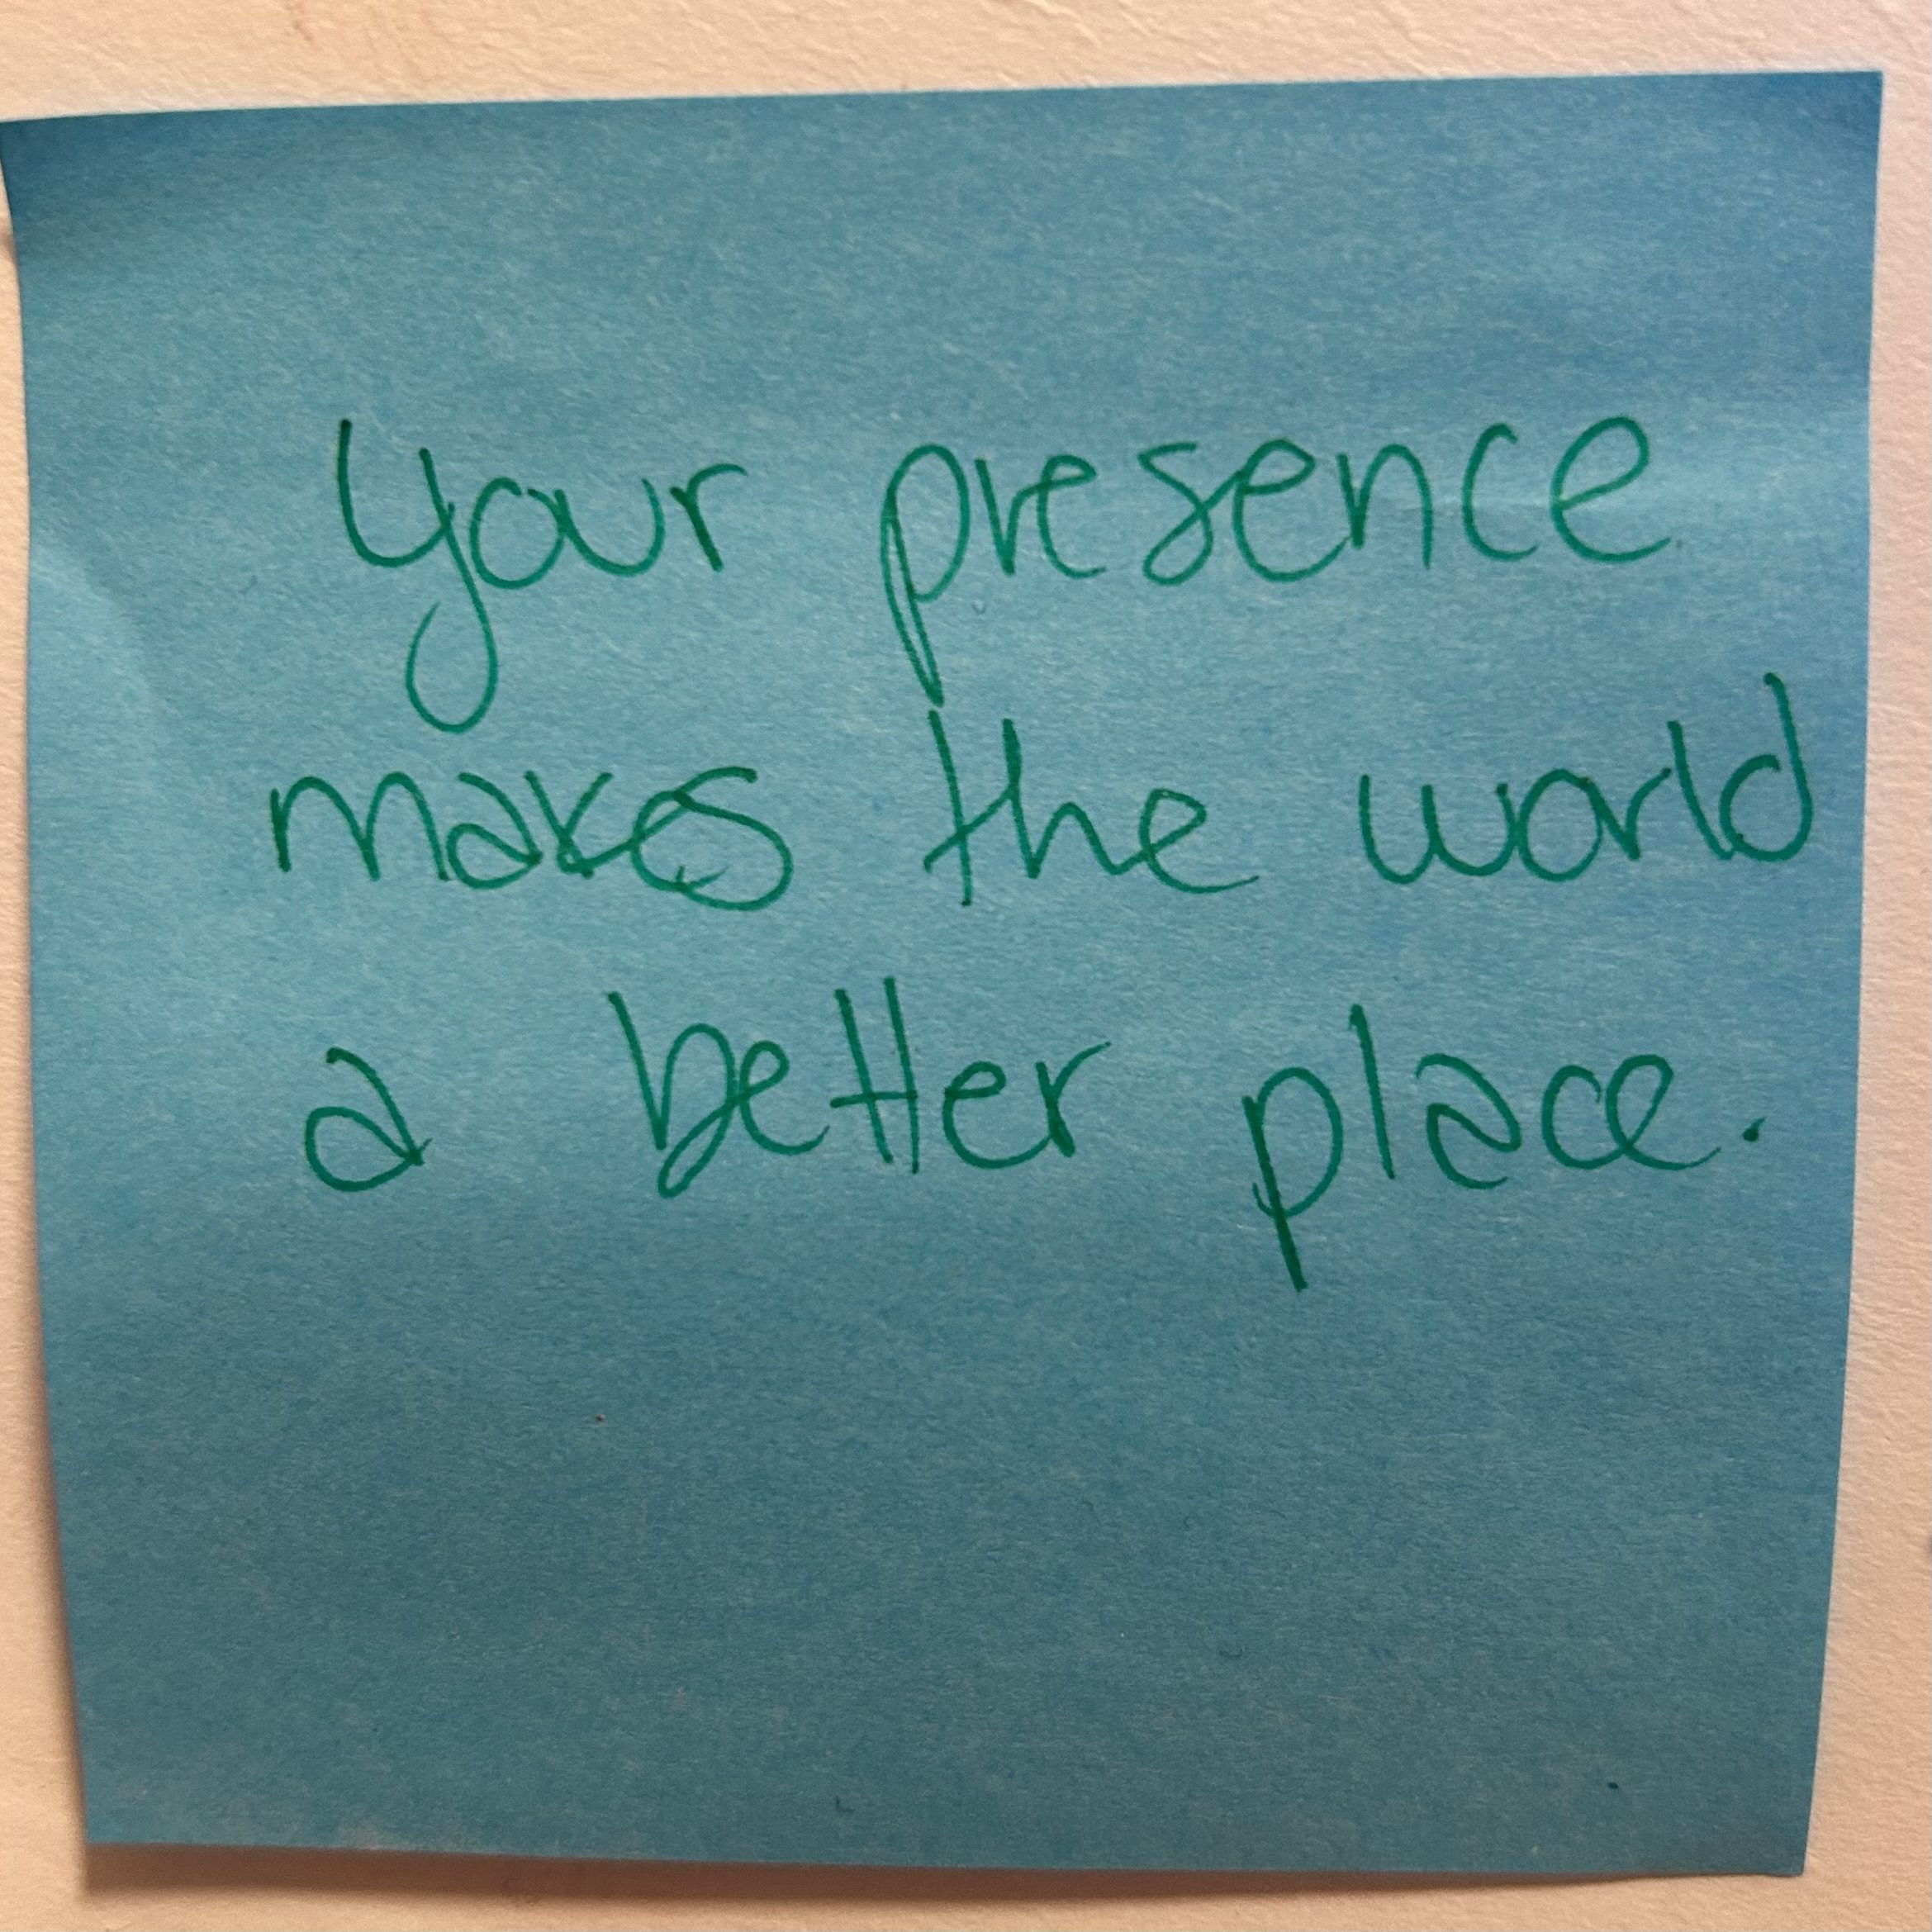 Your presence
makes the world
a better place.